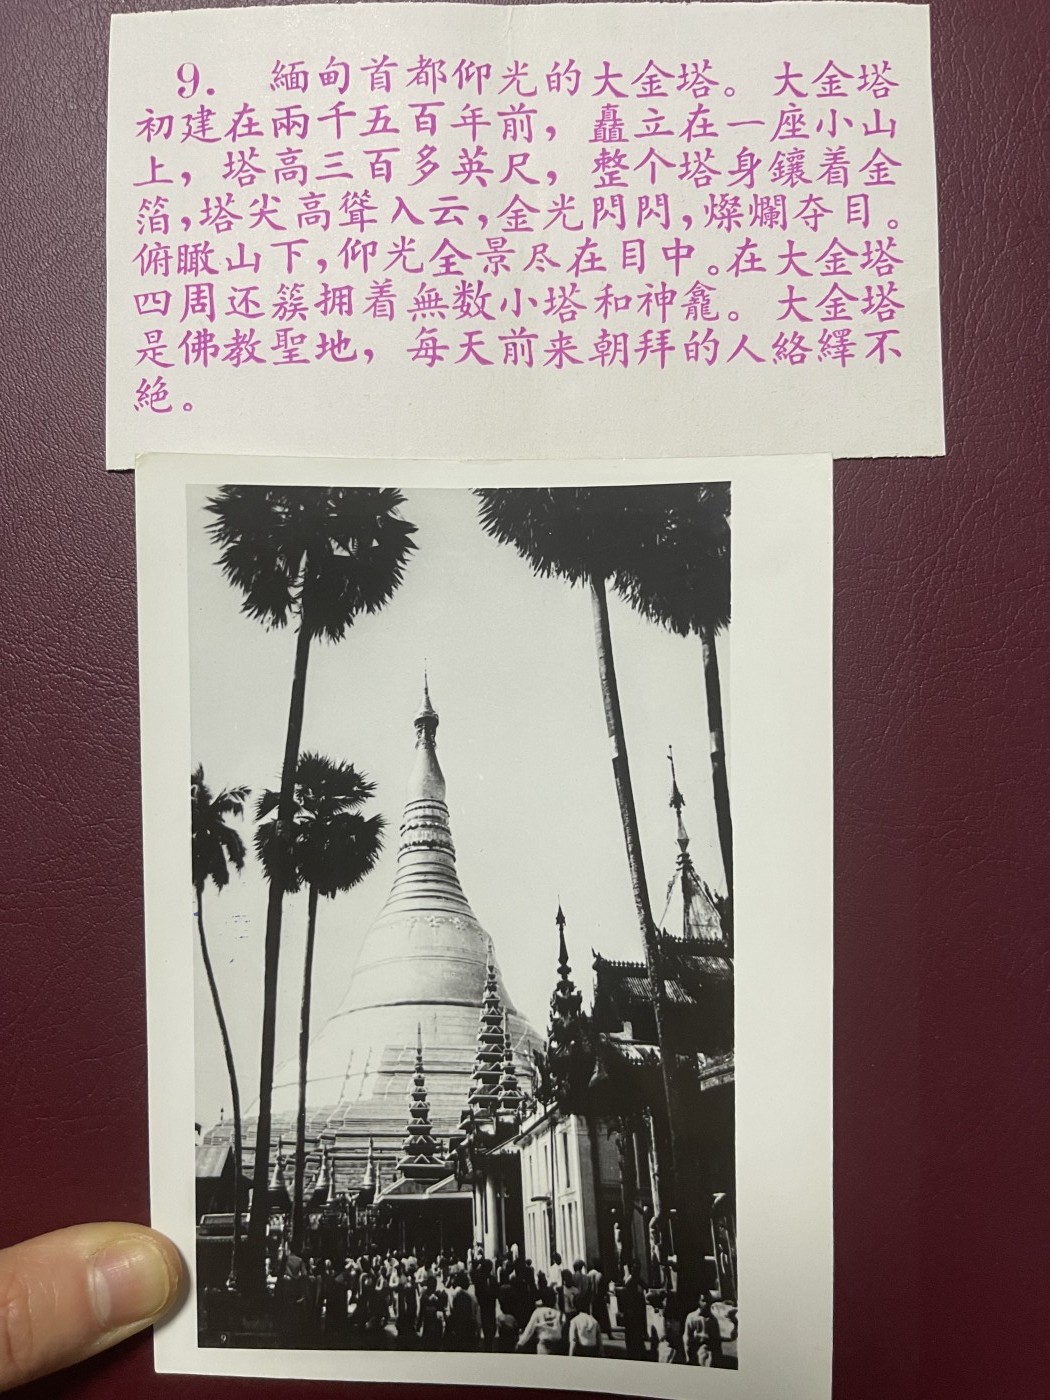 9. 緬甸首都仰光的大金塔。大金塔
初建在兩千五百年前，矗立在一座小山
上，塔高三百多英尺，整个塔身鑲着金
箔，塔尖高聳入云，金光閃閃，燦爛夺目。
俯瞰山下，仰光全景尽在目中。在大金塔
四周还簇拥着無数小塔和神龕。大金塔
是佛教聖地，每天前来朝拜的人絡繹不
絶。
9